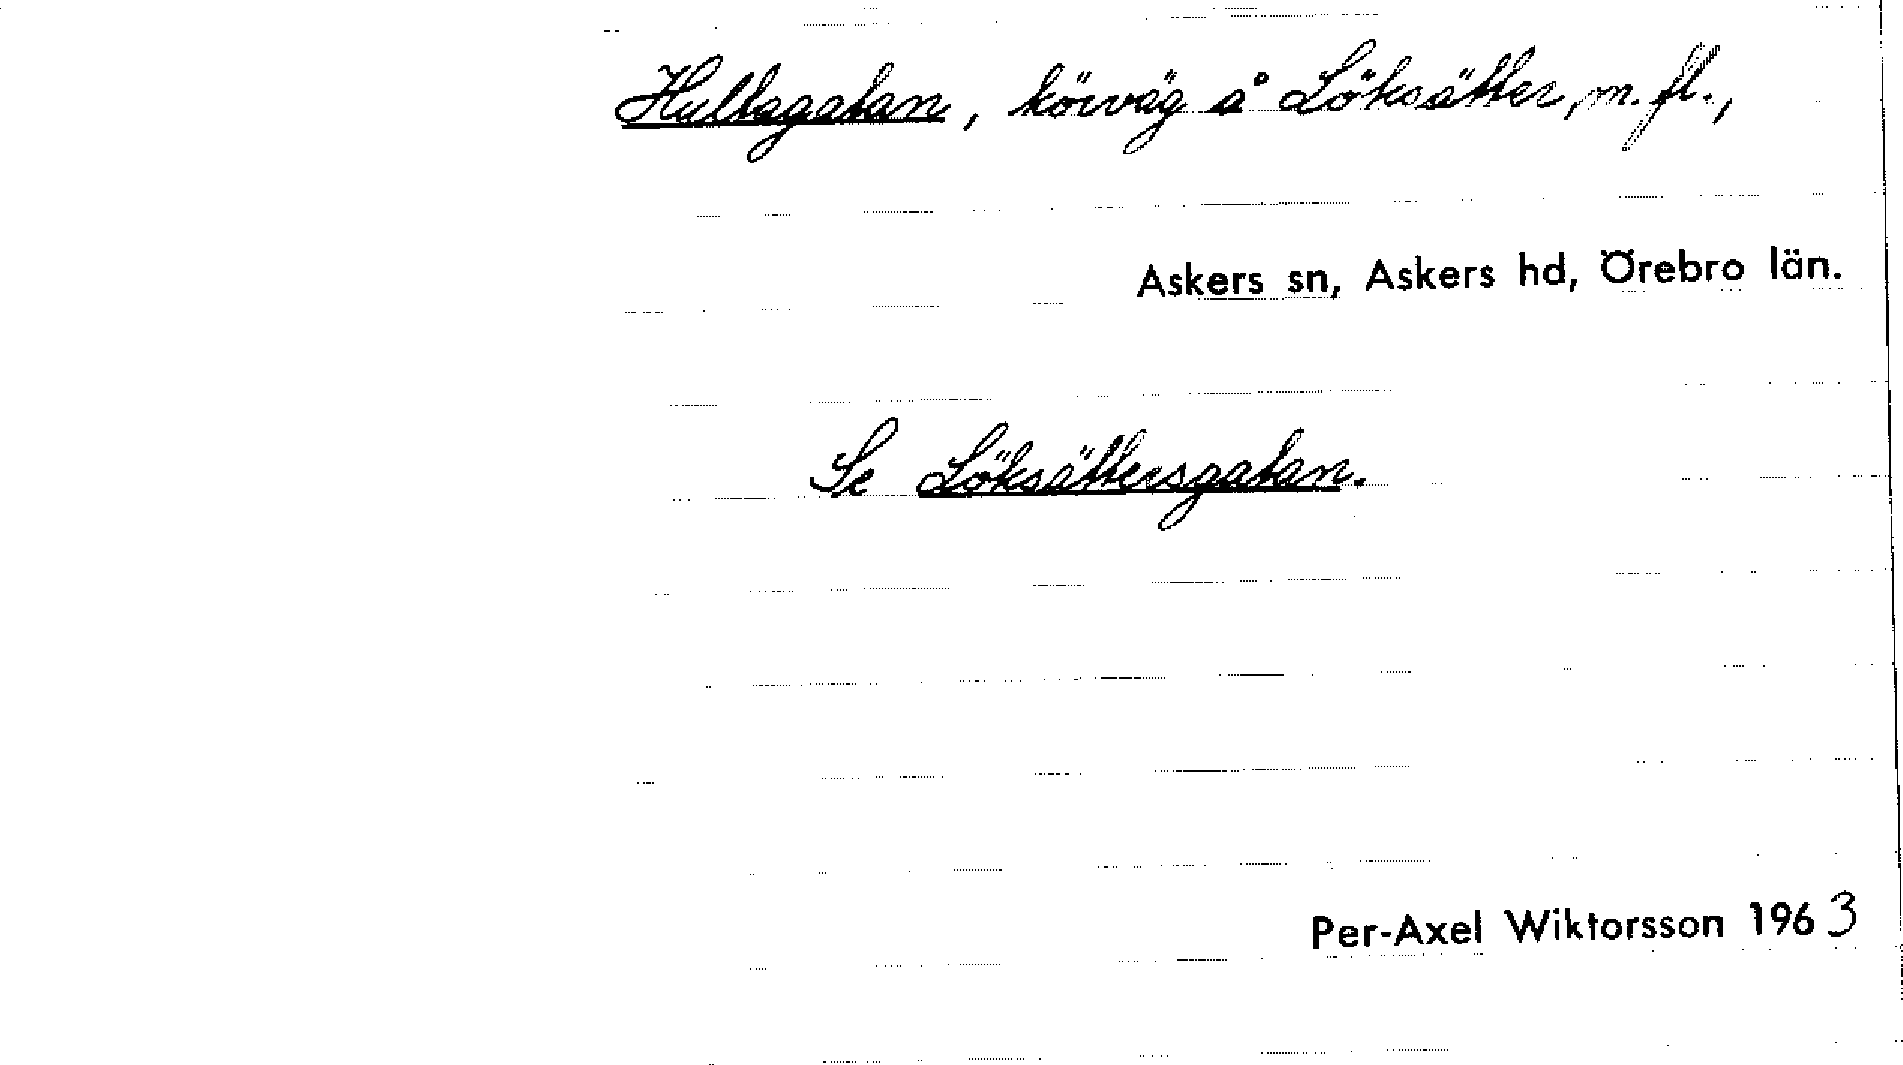 Hultagatan, körväg å Löksätter, m. fl.,
Askers sn, Askers hd, Örebro län.
Se Löksättersgatan.
Per-Axel Wiktorsson 1963